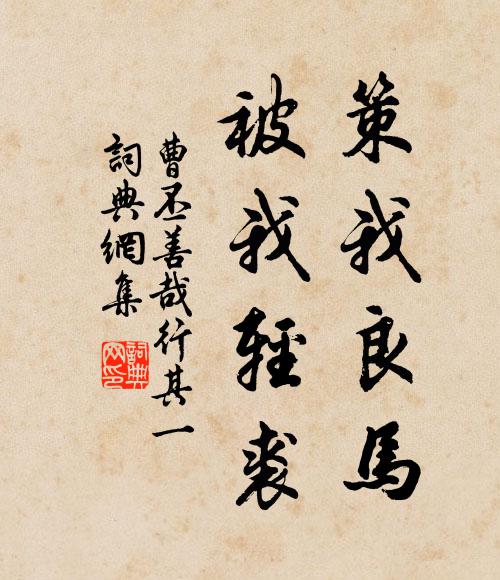 策我良馬
被我輕裘
曹丕善哉行其一
詞典網集
詞典网印